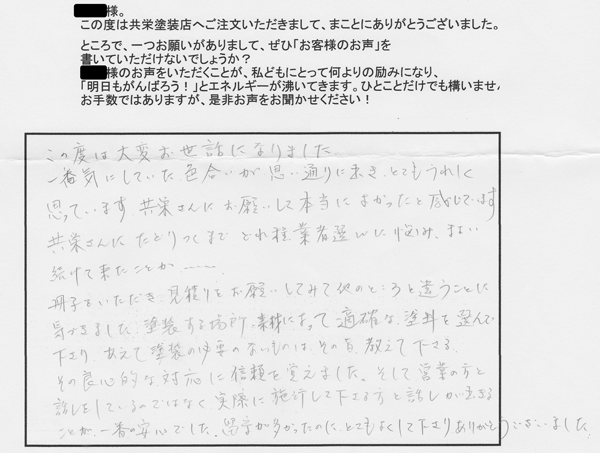 様。
この度は共栄塗装店へご注文いただきまして、まことにありがとうございました。
ところで、一つお願いがありまして、ぜひ「お客様のお声」を
書いていただけないでしょうか?
様のお声をいただくことが、私どもにとって何よりの励みになり、
「明日もがんばろう!」とエネルギーが沸いてきます。ひとことだけでも構いませ
お手数ではありますが、是非お声をお聞かせください!
この度は大変お世話になりました
一番気にしていた色合いが思い通りに出き、とてもうれしく
思っています。共栄さんにお願いして本当によかったと感じています
共栄さんにたどりつくまでどれ程業者選びに悩み、まよい
続けて来たことか〜〜〜。
冊子をいただき、見積りをお願いしてみて他のところと違うことに
気づきました。塗装する場所、素材によって適確な塗料を選んで
下さり、あえて塗装の必要のないものは、その旨、教えて下さる。
その良心的な対応に信頼を覚えました。そして営業の方と
話しをしているのではなく、実際に施行して下さる方と話しができる
ことが、一番の安心でした。留守が多かったのに、とてもよくして下さりありがとうございました。